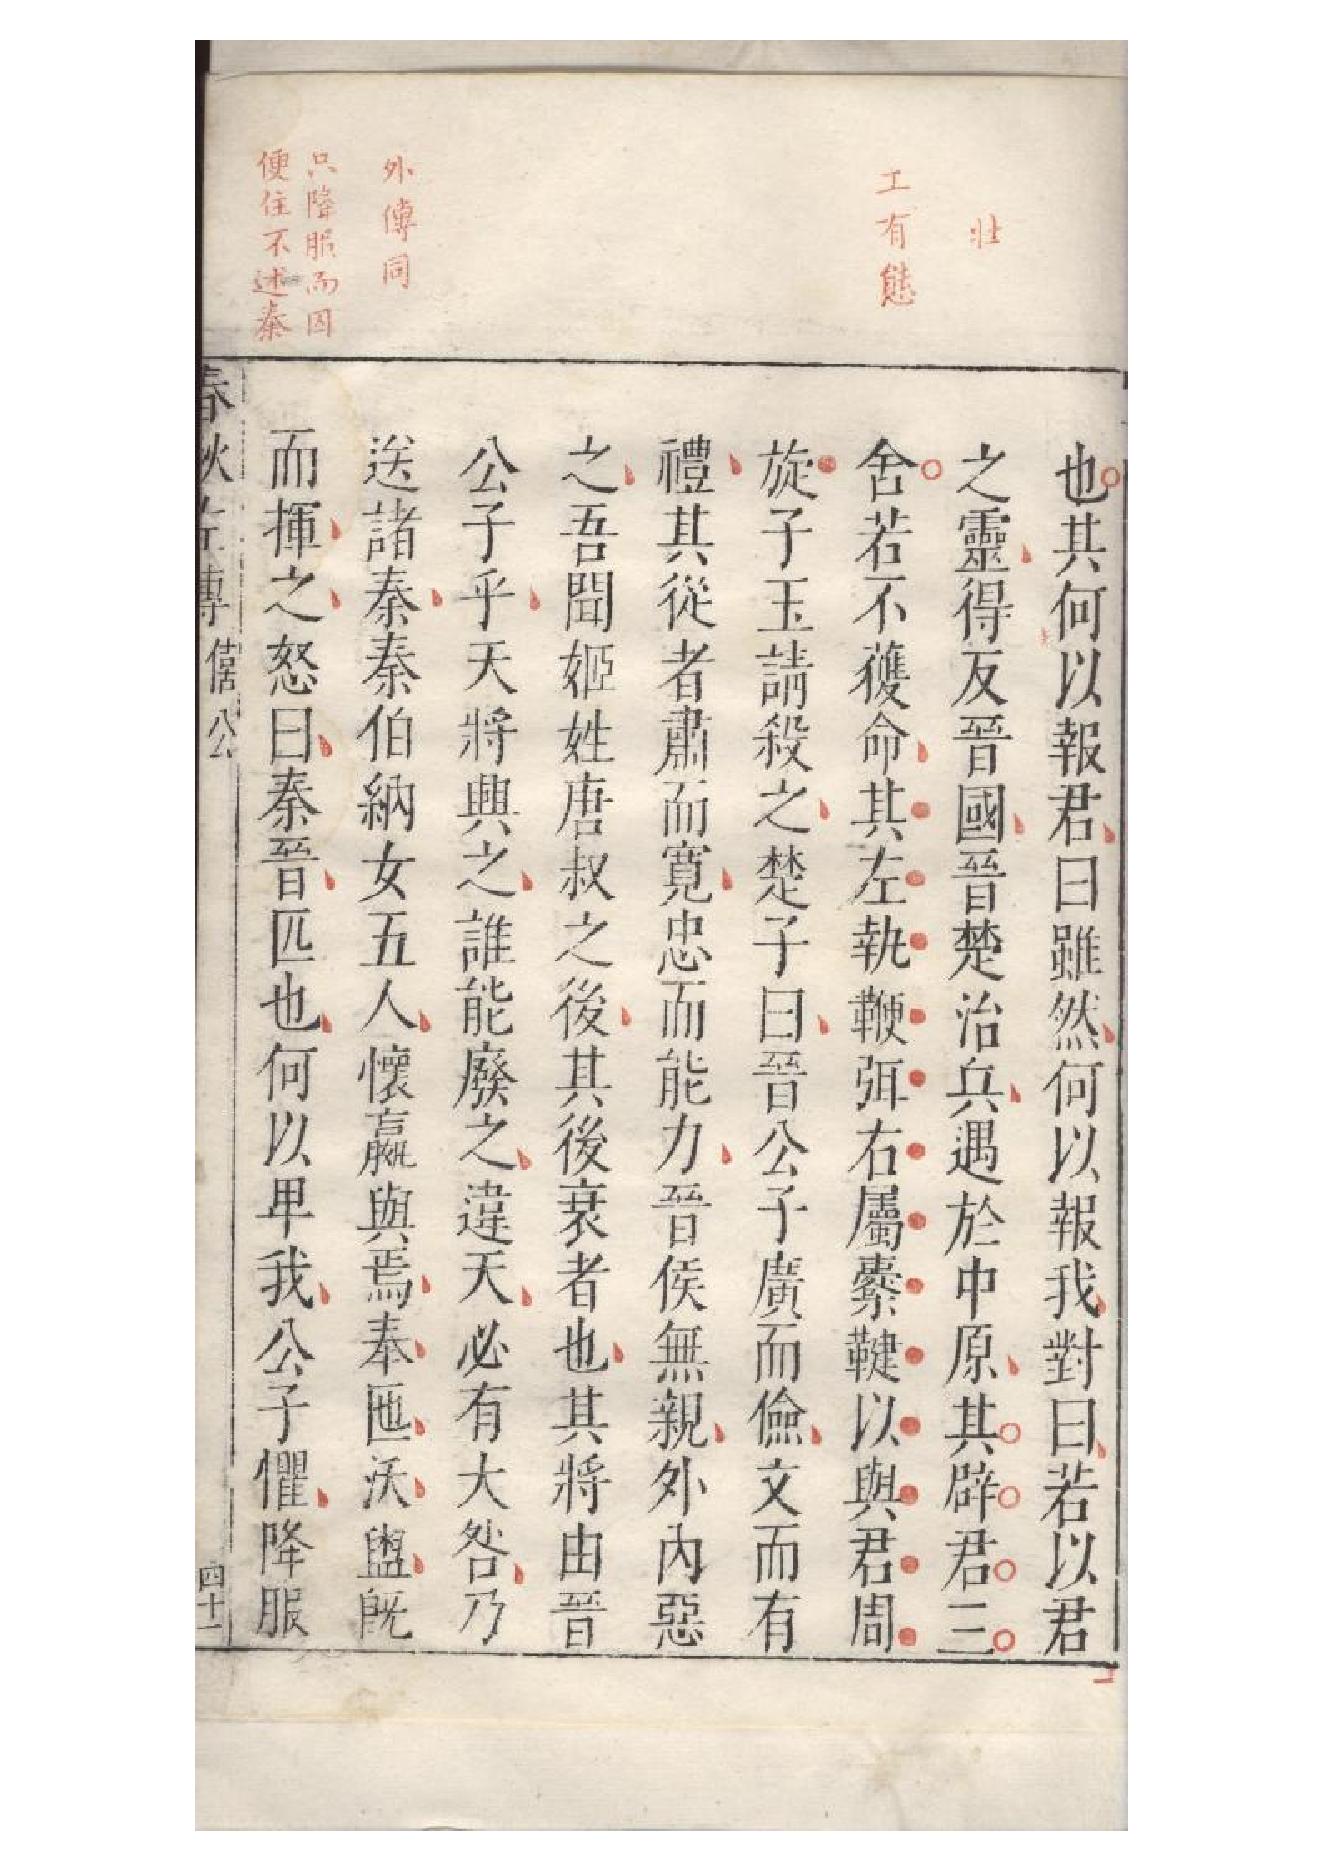 壯
工有態
外傳同
只降服而囚
便住不述秦
也其何以報君曰雖然何以報我對曰若以君
之靈得反晉國晉楚治兵遇於中原其辟君三
舍若不獲命其左執鞭弭右屬櫜鞬以與君周
旋子玉請殺之楚子曰晉公子廣而儉文而有
禮其從者肅而寬忠而能力晉侯無親外內惡
之吾聞姬姓唐叔之後其後衰者也其將由晉
公子乎天將興之誰能廢之違天必有大咎乃
送諸秦秦伯納女五人懷嬴與焉奉匜沃盥旣
而揮之怒曰秦晉匹也何以卑我公子懼降服
春秋左傳 僖公 四十一